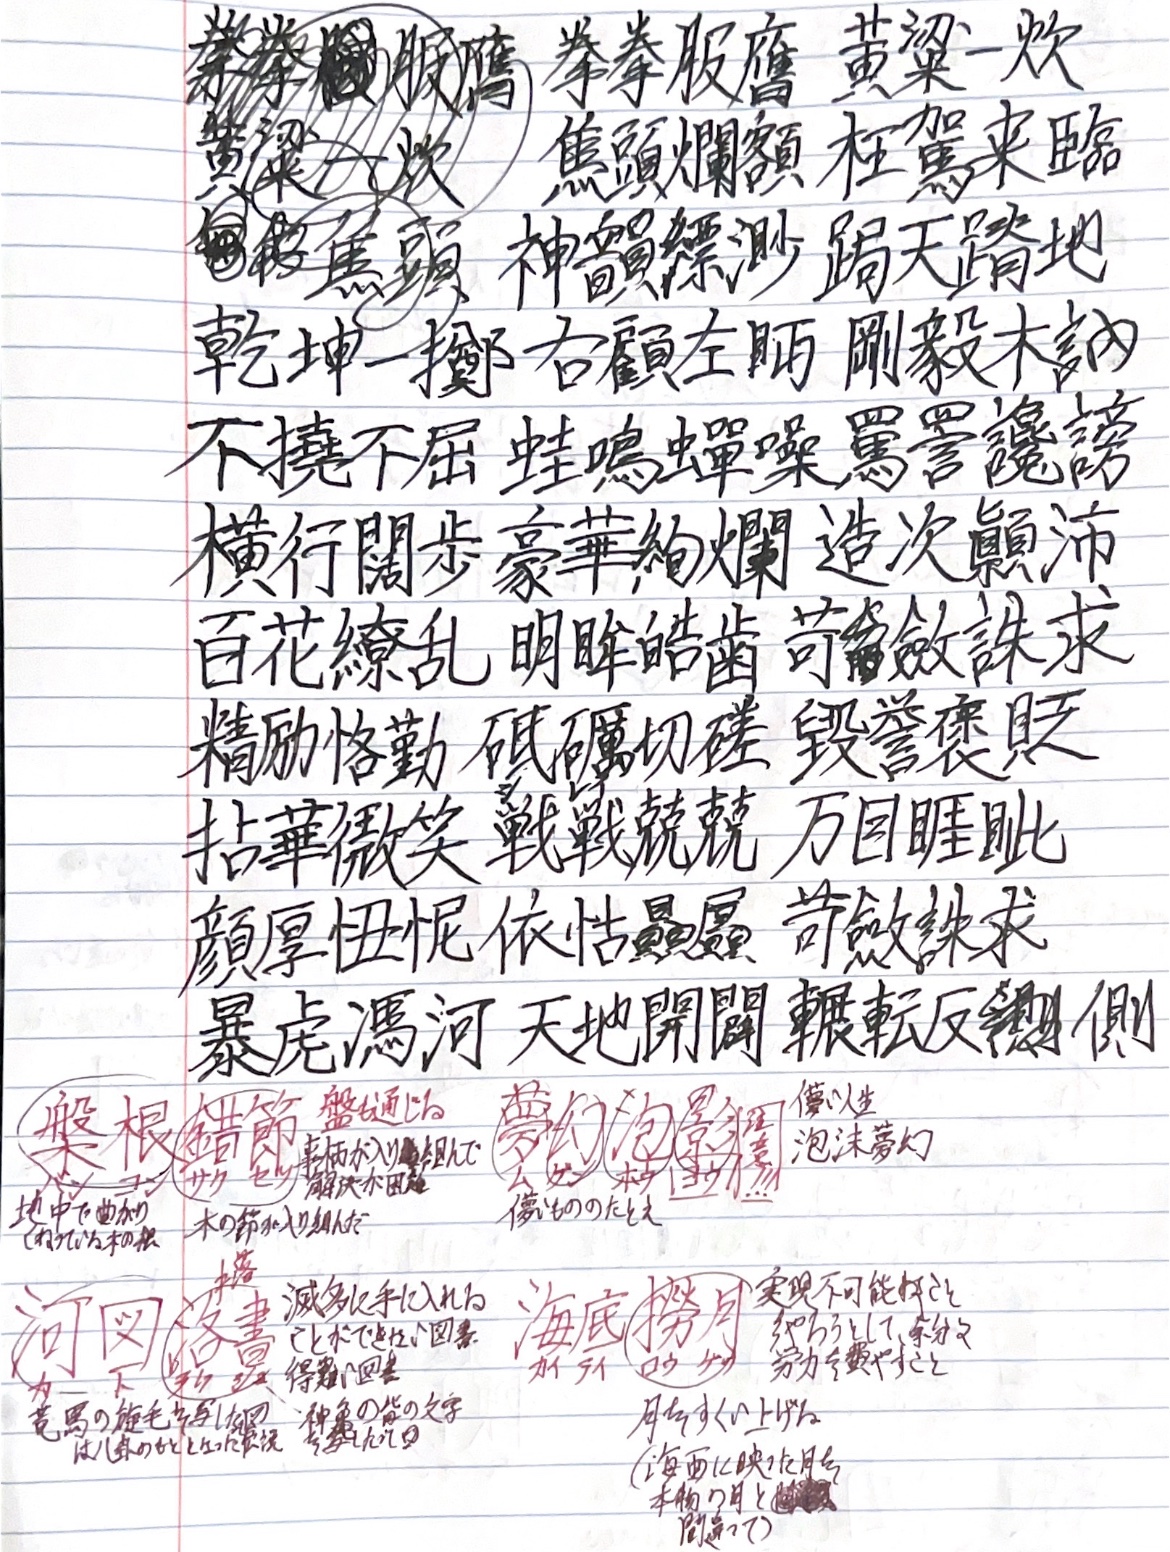 拳拳服膺 拳拳服膺 黄粱一炊
黄粱一炊 焦頭爛額 枉駕来臨
焦頭 神韻縹渺 跼天蹐地
乾坤一擲 右顧左眄 剛毅木訥
不撓不屈 蛙鳴蟬噪 罵詈讒謗
横行闊歩 豪華絢爛 造次顛沛
百花繚乱 明眸皓歯 苛斂誅求
精励恪勤 砥礪切磋 毀誉褒貶
拈華微笑 戦戦兢兢 万目睚眦
顔厚忸怩 依怙贔屓 苛斂誅求
暴虎馮河 天地開闢 輾転反側
盤根錯節
バンコン サクセツ
盤も通じる
事柄が入り組んで
解決が困難
地中で曲がり
くねっている木の根
木の節が入り組んだ
夢幻泡影
ムゲン ホウヨウ
注意!!!
儚い人生
泡沫夢幻
儚いもののたとえ
河図洛書
カ ト ラクショ
滅多に手に入れる
ことができない図書
得難い図書
竜馬の旋毛を写した図
は八卦のもととなった伝説
神亀の背の文字
海底撈月
カイテイ ロウゲツ
実現不可能なこと
をやろうとして、余分な
労力を費やすこと
月をすくい上げる
(海面に映った月を
本物の月と
間違って)